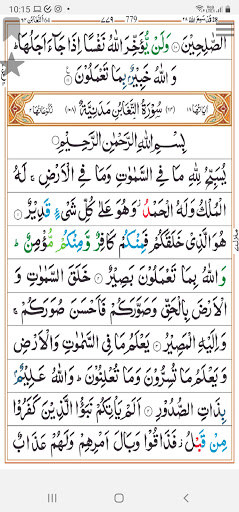 10:15 88%
٤٤٩ 779
الصّٰلِحِيْنَ ○ وَلَنْ يُّؤَخِّرَ اللّٰهُ نَفْسًا اِذَا جَآءَ اَجَلُهَا ؕ
وَ اللّٰهُ خَبِيْرٌۢ بِمَا تَعْمَلُوْنَ ○
سُوْرَةُ التَّغَابُنِ مَدَنِيَّةٌ
بِسْمِ اللّٰهِ الرَّحْمٰنِ الرَّحِيْمِ
يُسَبِّحُ لِلّٰهِ مَا فِي السَّمٰوٰتِ وَمَا فِي الْاَرْضِ ۚ لَهُ
الْمُلْكُ وَلَهُ الْحَمْدُ ؗ وَهُوَ عَلٰى كُلِّ شَيْءٍ قَدِيْرٌ ○
هُوَ الَّذِيْ خَلَقَكُمْ فَمِنْكُمْ كَافِرٌ وَّمِنْكُمْ مُّؤْمِنٌ ؕ
وَاللّٰهُ بِمَا تَعْمَلُوْنَ بَصِيْرٌ ○ خَلَقَ السَّمٰوٰتِ وَ
الْاَرْضَ بِالْحَقِّ وَصَوَّرَكُمْ فَاَحْسَنَ صُوَرَكُمْ ۚ
وَاِلَيْهِ الْمَصِيْرُ ○ يَعْلَمُ مَا فِي السَّمٰوٰتِ وَالْاَرْضِ
وَيَعْلَمُ مَا تُسِرُّوْنَ وَمَا تُعْلِنُوْنَ ؕ وَاللّٰهُ عَلِيْمٌۢ
بِذَاتِ الصُّدُوْرِ ○ اَلَمْ يَاْتِكُمْ نَبَؤُا الَّذِيْنَ كَفَرُوْا
مِنْ قَبْلُ ؗ فَذَاقُوْا وَبَالَ اَمْرِهِمْ وَلَهُمْ عَذَابٌ